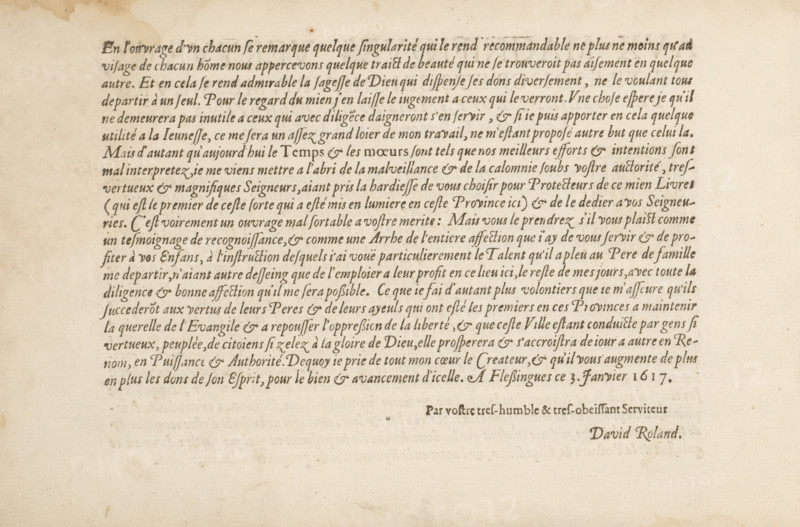 En l'ouvrage d'vn chacun ſe remarque quelque ſingularité qui le rend recommandable ne plus ne moins qu'au
viſage de chacun hõme nous appercevons quelque traict de beauté qui ne ſe trouveroit pas aiſement en quelque
autre. Et en cela ſe rend admirable la ſageſſe de Dieu qui diſpenſe ſes dons diverſement, ne le voulant tous
departir à un ſeul. Pour le regard du mien j'en laiſſe le iugement a ceux qui le verront. Vne choſe eſpere je qu'il
ne demeurera pas inutile a ceux qui avec diligẽce daigneront s'en ſervir, & ſi ie puis apporter en cela quelque
utilité a la Ieuneſſe, ce me ſera un aſſez grand loier de mon travail, ne m'eſtant propoſé autre but que celui la.
Mais d'autant qu'aujourd'hui le Temps & les mœurs ſont tels que nos meilleurs efforts & intentions ſont
mal interpretez, ie me viens mettre a l'abri de la malveillance & de la calomnie ſoubs voſtre auctorité, treſ-
vertueux & magnifiques Seigneurs, aiant pris la hardieſſe de vous choiſir pour Protecteurs de ce mien Livret
(qui eſt le premier de ceſte ſorte qui a eſté mis en lumiere en ceſte Province ici) & de le dedier a vos Seigneu-
ries. C'eſt voirement un ouvrage mal ſortable a voſtre merite: Mais vous le prendrez s'il vous plaiſt comme
un teſmoignage de recognoiſſance, & comme une Arrhe de l'entiere affection que i'ay de vous ſervir & de pro-
fiter à vos Enfans, à l'inſtruction deſquels i'ai voüé particulierement le Talent qu'il a pleu au Pere de famille
me departir, n'aiant autre deſſeing que de l'emploier a leur profit en ce lieu ici, le reſte de mes jours, avec toute la
diligence & bonne affection qu'il me ſera poßible. Ce que ie fai d'autant plus volontiers que ie m'aſſeure qu'ils
ſuccederõt aux vertus de leurs Peres & de leurs ayeuls qui ont eſté les premiers en ces Provinces a maintenir
la querelle de l'Evangile & a repouſſer l'oppreßion de la liberté, & que ceſte Ville eſtant conduicte par gens ſi
vertueux, peuplée, de citoiens ſi zelez à la gloire de Dieu, elle proſperera & s'accroiſtra de iour a autre en Re-
nom, en Puiſſance & Authorité. Dequoy ie prie de tout mon cœur le Createur, & qu'il vous augmente de plus
en plus les dons de ſon Eſprit, pour le bien & avancement d'icelle. A Fleßingues ce 3. Janvier 1617.
Par voſtre treſ-humble & treſ-obeiſſant Serviteur
David Roland.